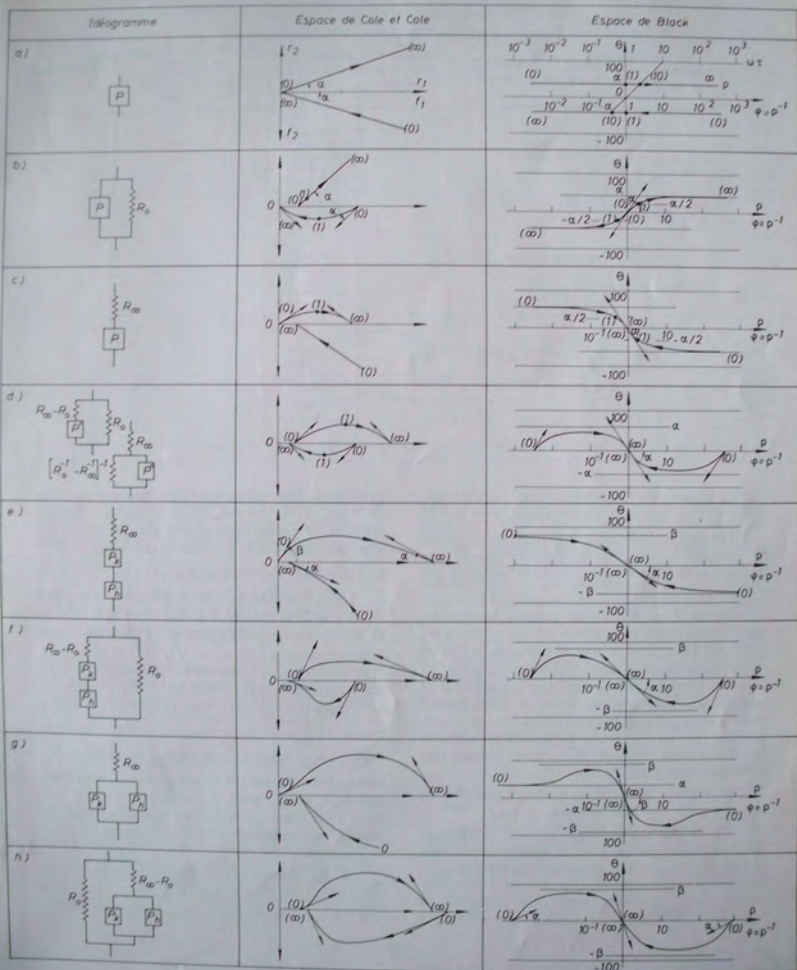 Idéogramme Espace de Cole et Cole Espace de Black
a)
P
r₂ (∞) (0) α r₁ (∞) α f₁ f₂ (0)
θ 10⁻³ 10⁻² 10⁻¹ 1 10 10² 10³ ωτ 100 (0) α (1) (10) ∞ ρ 0 10⁻² 10⁻¹ α 1 10 10² 10³ φ=ρ⁻¹ (∞) (10) (1) (0) -100
b)
P R₀
(∞) 0 (0) α α (∞) (1) (0)
θ 100 α (∞) (0) (1) α/2 ρ -α/2 (1) (0) 10 φ=ρ⁻¹ (∞) -100
c)
R∞
P
(0) (1) (∞) 0 (∞) (0)
θ 100 (0) α/2 (1) (∞) ρ 10⁻¹ (∞) (1) 10 -α/2 φ=ρ⁻¹ (0) -100
d)
R∞-R₀ R₀ R∞
P'
[R₀⁻¹-R∞⁻¹]⁻¹ P'
(1) 0 (0) (∞) (∞) (1) (0)
θ 100 α (0) (∞) ρ 10⁻¹ (∞) α 10 (0) φ=ρ⁻¹ -α -100
e)
R∞
Pk
Ph
(0) β α 0 (∞) α (∞) (0)
θ 100 β (0) (∞) ρ 10⁻¹ (∞) α 10 φ=ρ⁻¹ -β (0) -100
f)
R∞-R₀
Pk R₀
Ph
0 (0) (∞) (∞) (0)
θ 100 β (0) (∞) ρ 10⁻¹ (∞) α 10 (0) φ=ρ⁻¹ -β -100
g)
R∞
Pk Ph
0 (0) (∞) (∞) 0
θ 100 β (0) α (∞) ρ -α 10⁻¹ (∞) β 10 φ=ρ⁻¹ (0) -β 100
h)
R₀ R∞-R₀
Pk Ph
0 (0) (∞) (∞) (0)
θ 100 β (0) α (∞) α ρ 10⁻¹ (∞) 10 (0) φ=ρ⁻¹ -β -100